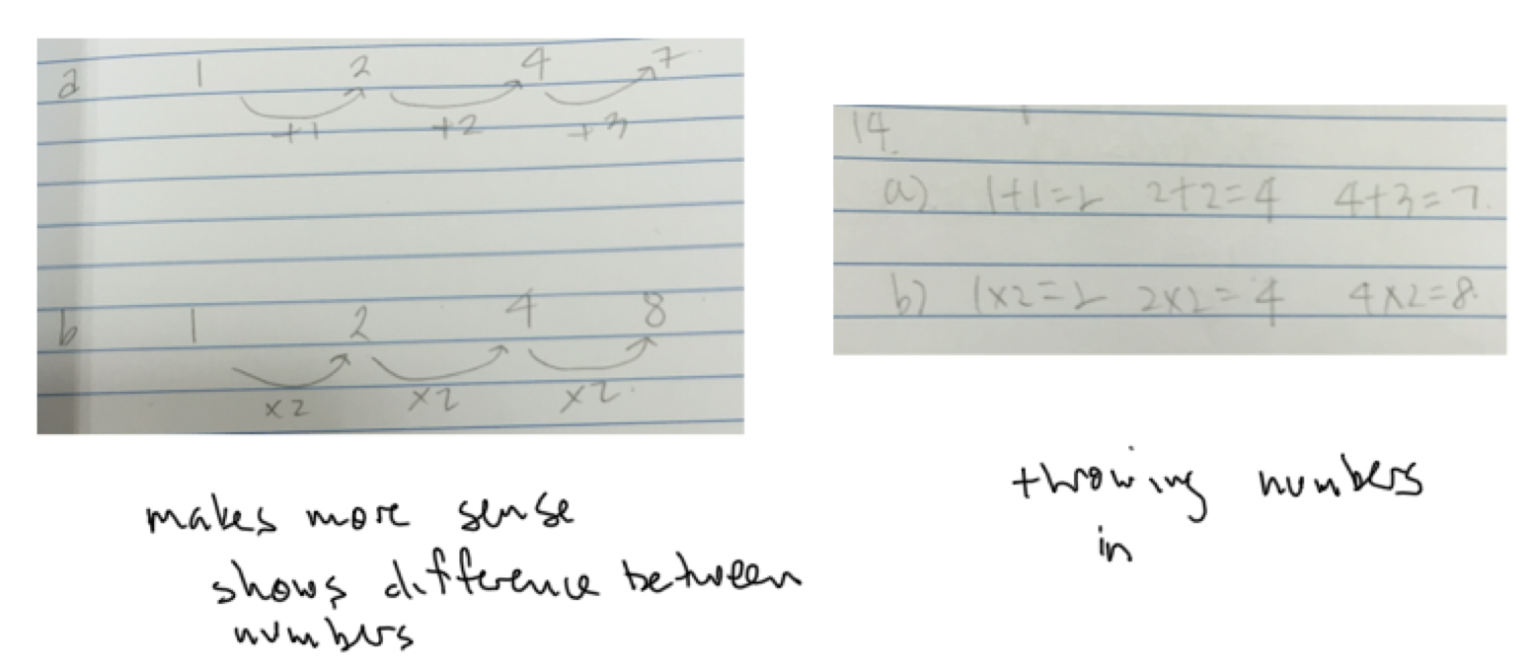 a 1 2 4 7
+1 +2 +3
b 1 2 4 8
×2 ×2 ×2.
makes more sense
shows difference between
numbers
14.
a) 1+1=2 2+2=4 4+3=7.
b) 1×2=2 2×2=4 4×2=8.
throwing numbers
in